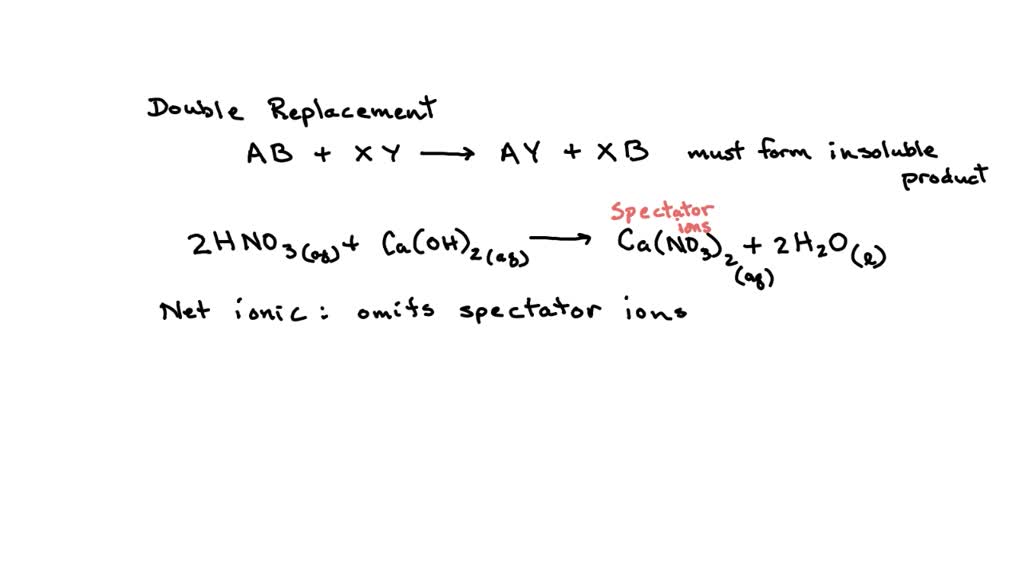 Double Replacement
AB + XY → AY + XB must form insoluble
product
Spectator
ions
2HNO₃(aq) + Ca(OH)₂(aq) → Ca(NO₃)₂(aq) + 2H₂O(l)
Net ionic: omits spectator ions